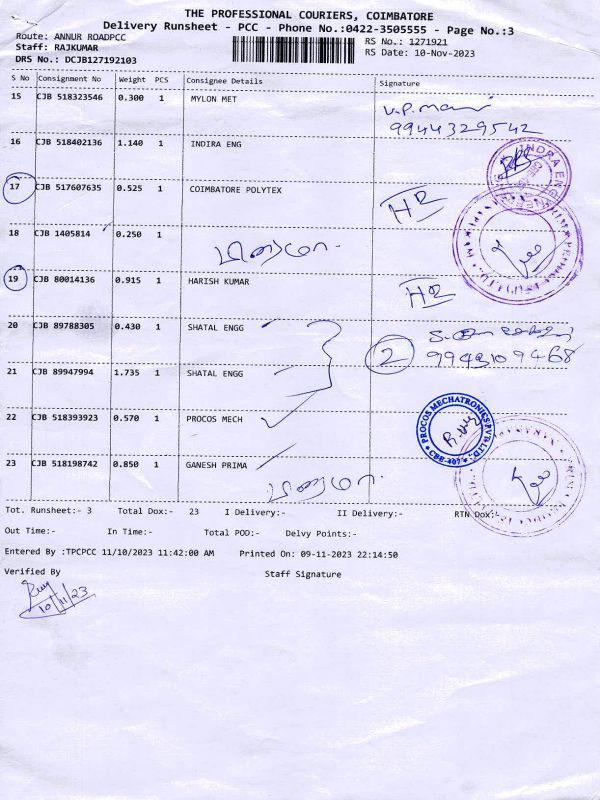 THE PROFESSIONAL COURIERS, COIMBATORE
Delivery Runsheet - PCC - Phone No.:0422-3505555 - Page No.:3
Route: ANNUR ROADPCC
RS No.: 1271921
Staff: RAJKUMAR
RS Date: 10-Nov-2023
DRS No.: DCJB127192103
S No Consignment No Weight PCS Consignee Details Signature
15 CJB 518323546 0.300 1 MYLON MET
V.P. mani
9944329542
16 CJB 518402136 1.140 1 INDIRA ENG
17 CJB 517607635 0.525 1 COIMBATORE POLYTEX
18 CJB 1405814 0.250 1
19 CJB 80014136 0.915 1 HARISH KUMAR
20 CJB 89788305 0.430 1 SHATAL ENGG
2 9943109468
21 CJB 89947994 1.735 1 SHATAL ENGG
22 CJB 518393923 0.570 1 PROCOS MECH
PROCOS MECHATRONICS PVT LTD.
CBE-407
23 CJB 518198742 0.850 1 GANESH PRIMA
Tot. Runsheet:- 3 Total Dox:- 23 I Delivery:- II Delivery:- RTN Dox:-
Out Time:- In Time:- Total POD:- Delvy Points:-
Entered By :TPCPCC 11/10/2023 11:42:00 AM Printed On: 09-11-2023 22:14:50
Verified By Staff Signature
10/11/23